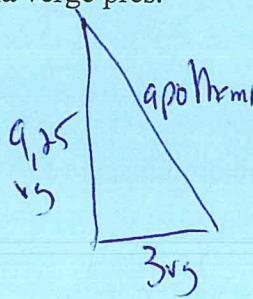 la verge près.
apothèm
9,25
vg
3vg